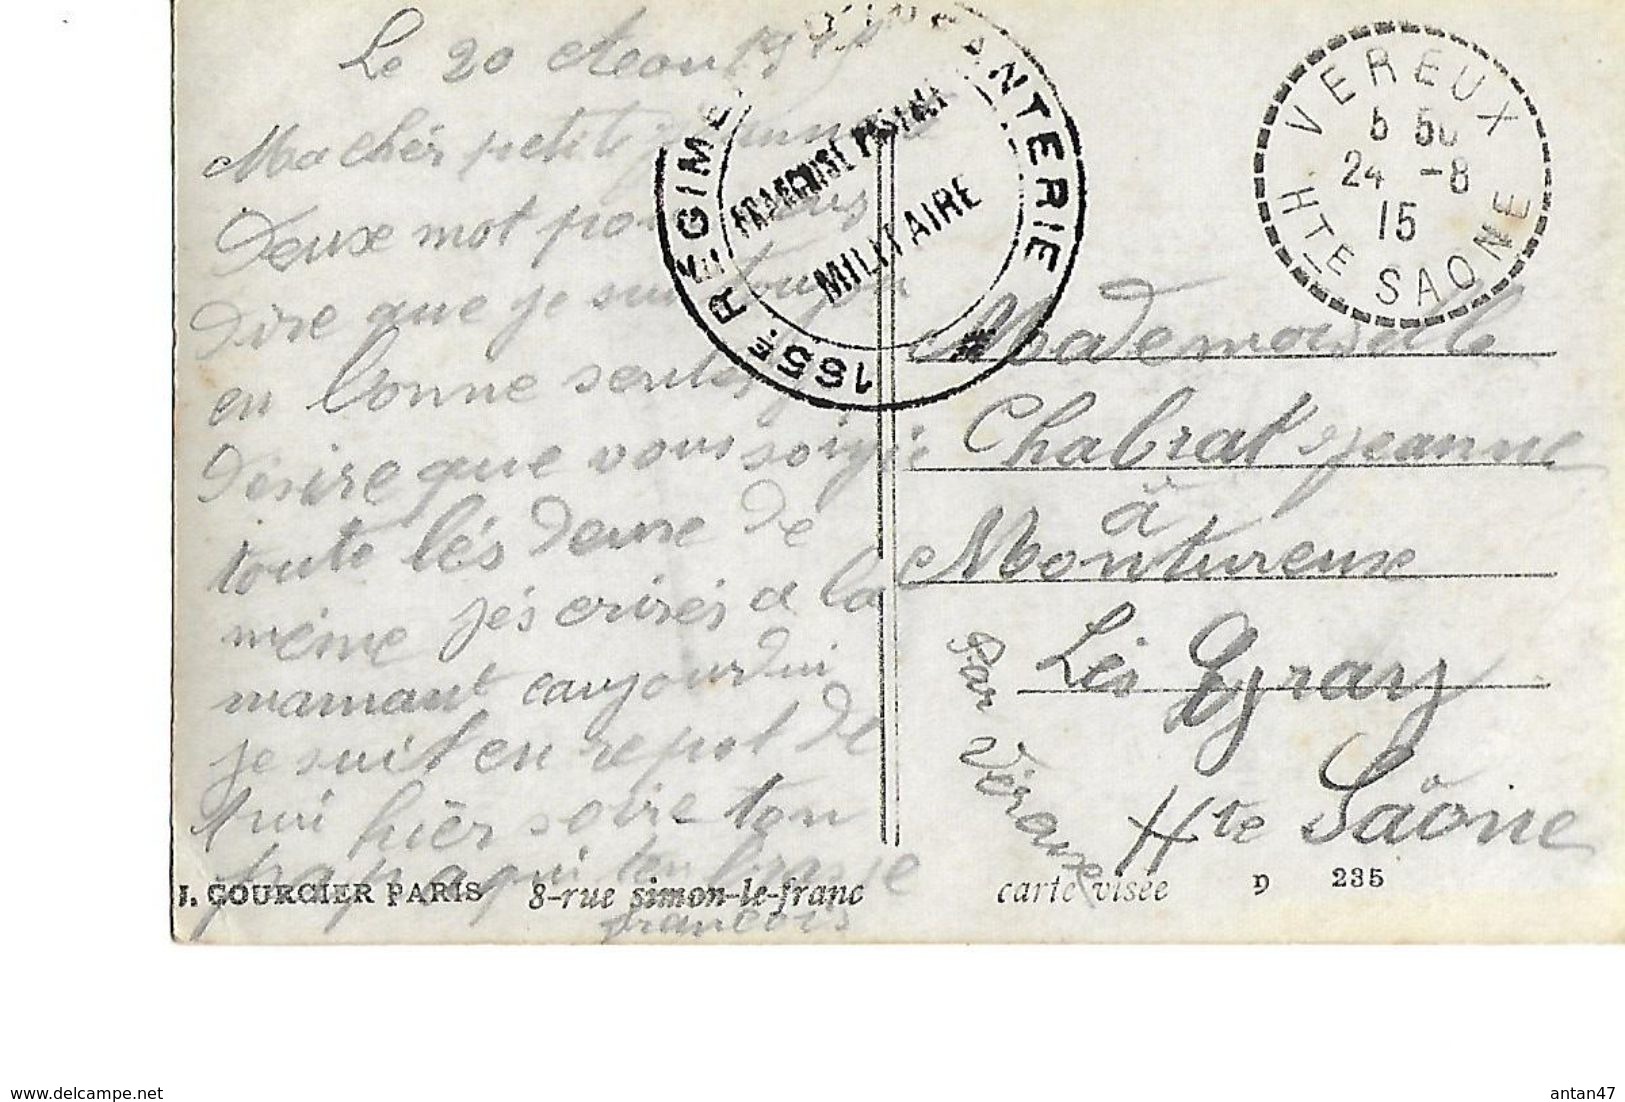 Le 20 Aout 1915
Ma cher petit jeanne
Deux mot pour vous
dire que je suis toujour
en bonne sentes
désire que vous soigie
toute lés deux de
même jés crirés a la
mamant aujourdui
je suit en repot de
hièr soire ton
papa qui ten brasse
francois
165E RÉGIMENT D'INFANTERIE
FRANCHISE POSTALE
MILITAIRE
VEREUX
5 50
24 -8
15
HTE SAONE
Mademoiselle
Chabrat jeanne
à
Montureux
Lés Gray
Par Véreux
Hte Saône
J. GOURCIER PARIS 8-rue simon-le-franc carte visée D 235
www.delcampe.net
antan47